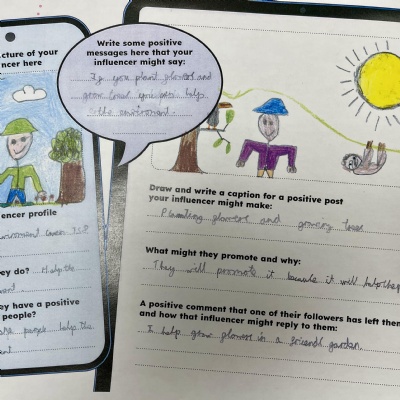 cture of your
ncer here
Write some positive
messages here that your
influencer might say:
If you plant flowers and
grow trees you will help
the enviroment.
encer profile
hey do? Help the
ey have a positive
people?
people help the
Draw and write a caption for a positive post
your influencer might make:
Planting flowers and growing trees
What might they promote and why:
They will promote it because it will help the
A positive comment that one of their followers has left them
and how that influencer might reply to them:
I help grow flowers in a friends garden.